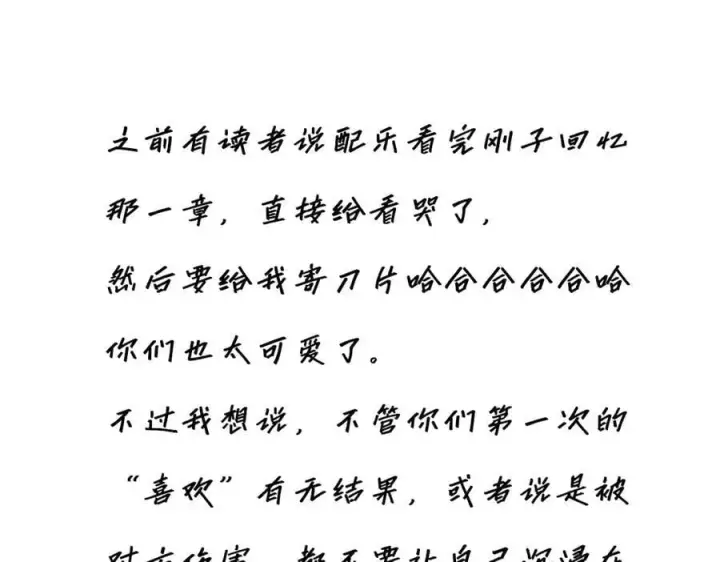 之前有读者说配乐看完刚子回忆
那一章，直接给看哭了，
然后要给我寄刀片哈合合合合哈
你们也太可爱了。
不过我想说，不管你们第一次的
“喜欢”有无结果，或者说是被
对方伤害，都不要让自己沉浸在